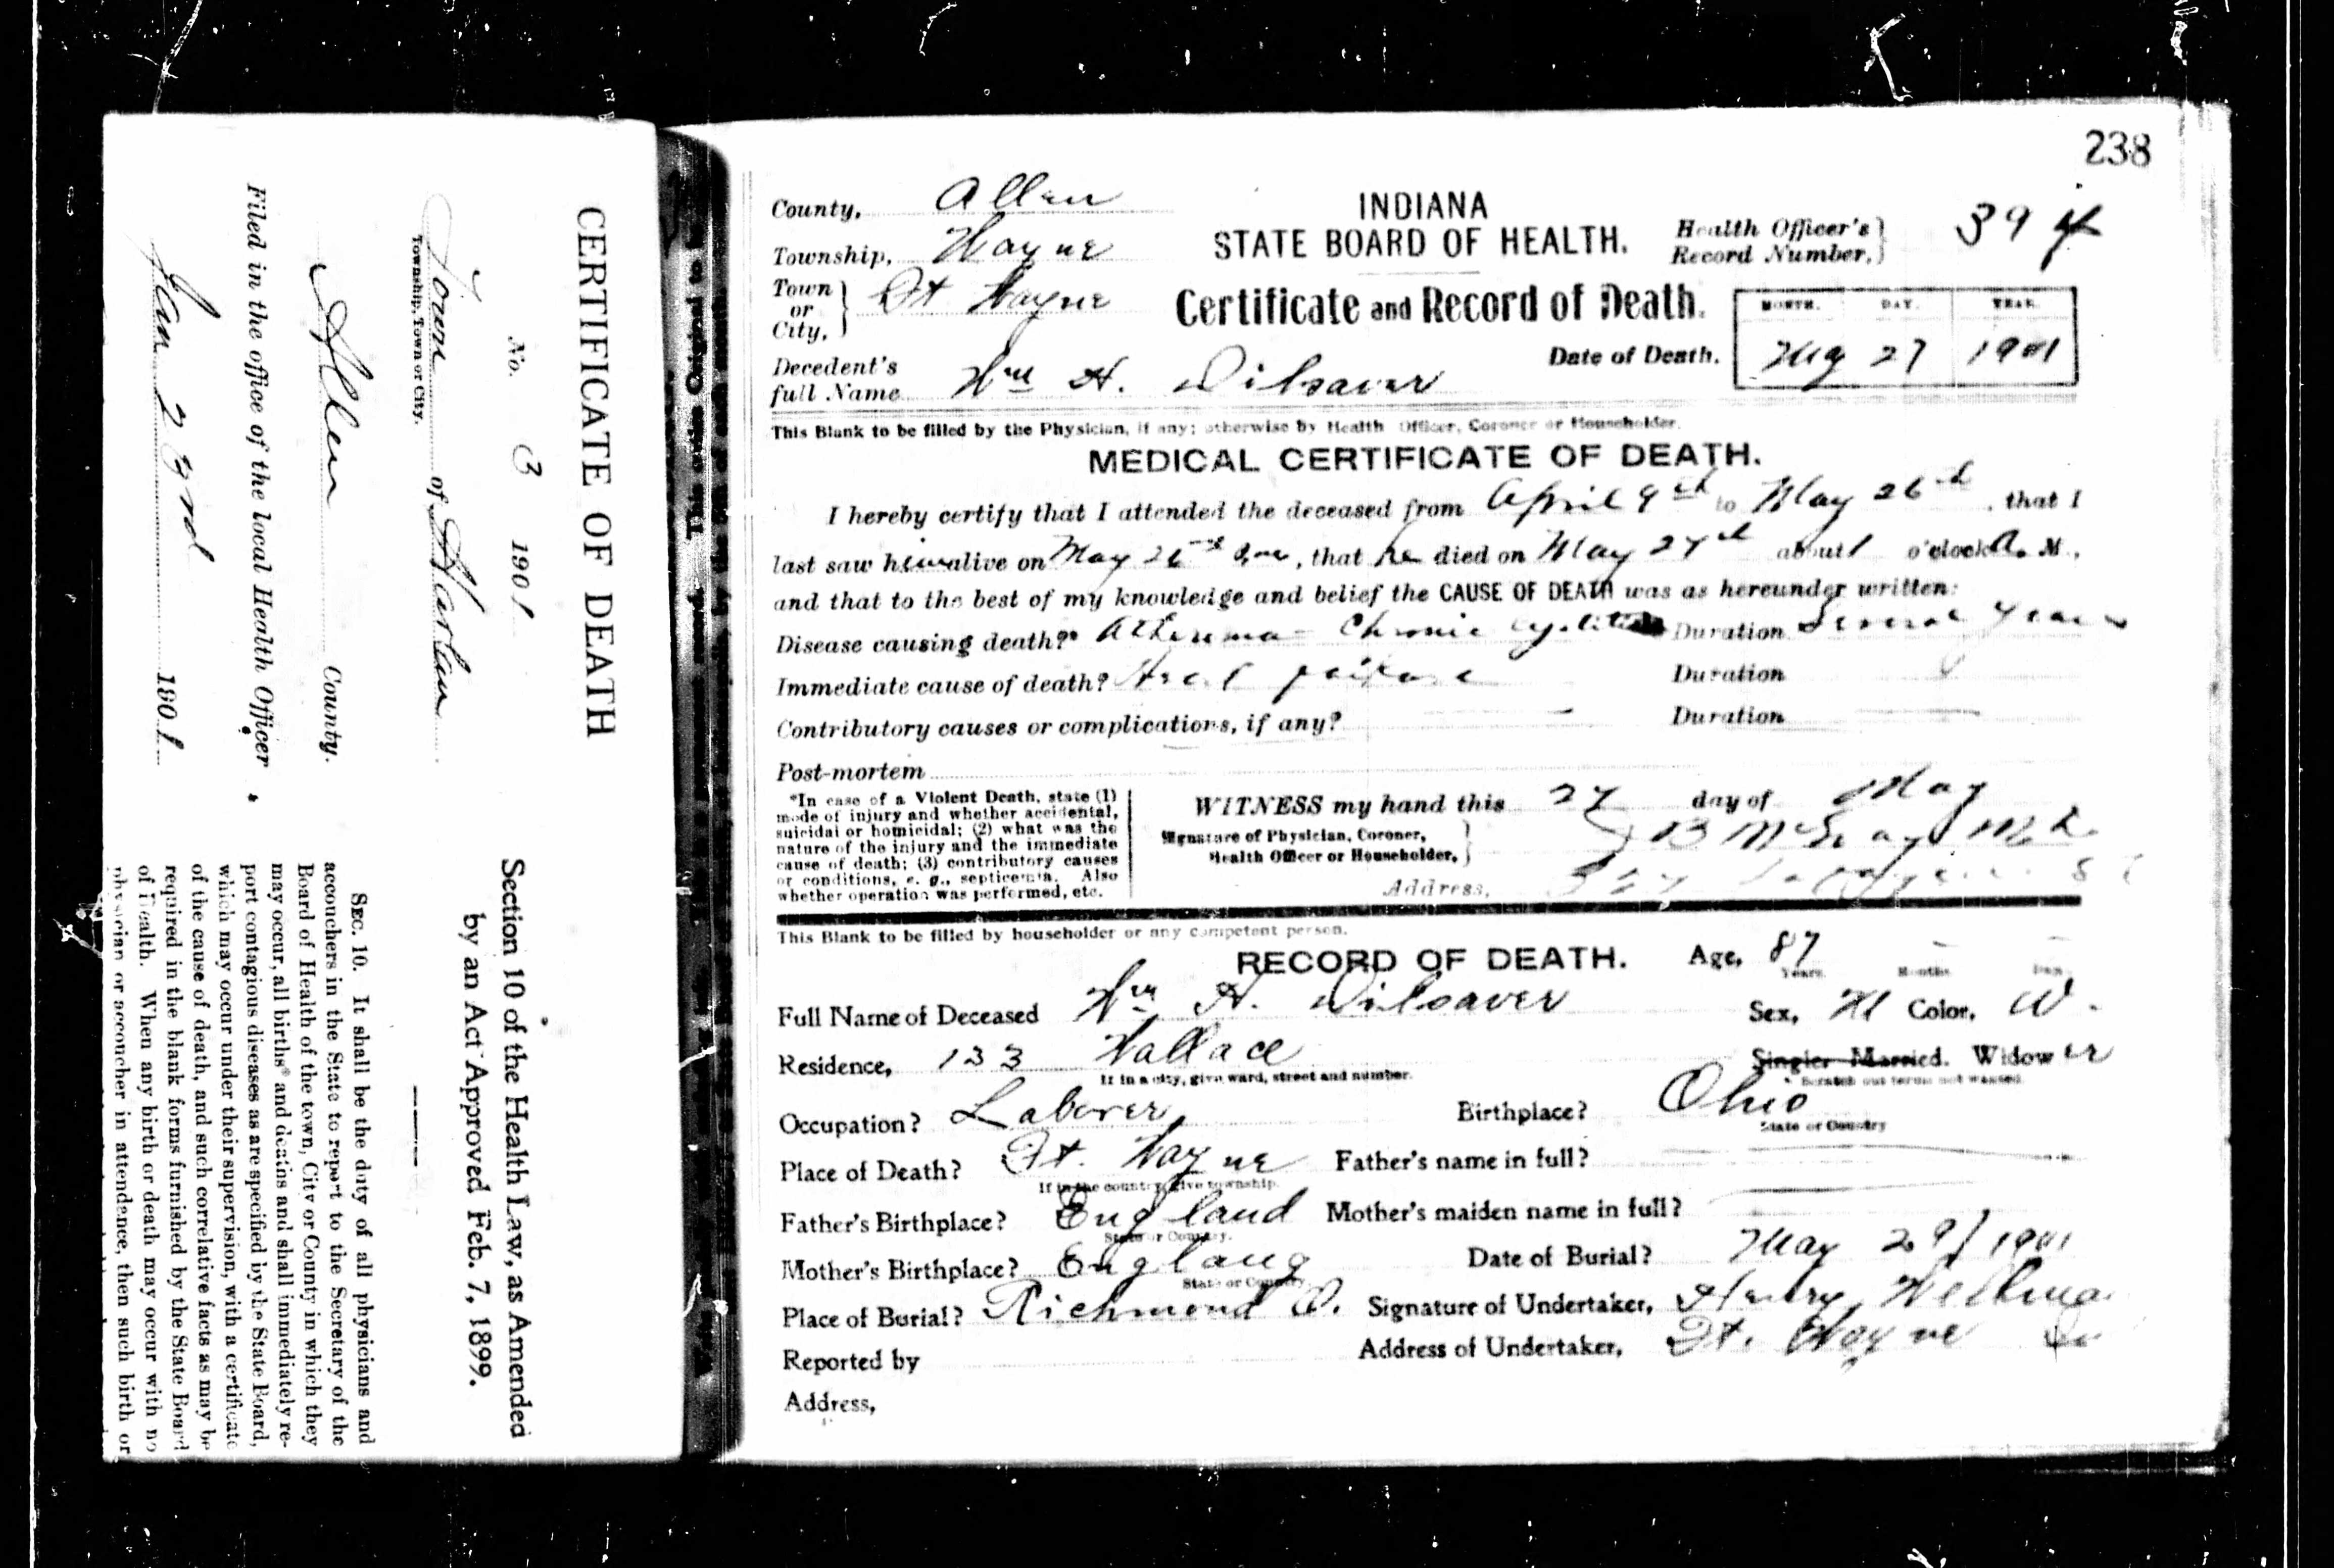 CERTIFICATE OF DEATH
No. 3 1901
Town of Harlan
Township, Town or City.
Allen County.
Filed in the office of the local Health Officer
Jan 23rd 1901
Section 10 of the Health Law, as Amended
by an Act Approved Feb. 7, 1899.
SEC. 10. It shall be the duty of all physicians and
accouchers in the State to report to the Secretary of the
Board of Health of the town, City or County in which they
may occur, all births and deaths and shall immediately re-
port contagious diseases as are specified by the State Board,
which may occur under their supervision, with a certificate
of the cause of death, and such correlative facts as may be
required in the blank forms furnished by the State Board
of Health. When any birth or death may occur with no
physician or accoucher in attendence, then such birth or
238
County, Allen
Township, Wayne
Town or City, Ft Wayne
INDIANA
STATE BOARD OF HEALTH.
Certificate and Record of Death.
Health Officer's Record Number, 394
MONTH. DAY. YEAR.
Date of Death. May 27 1901
Decedent's full Name Wm H. Dilsaver
This Blank to be filled by the Physician, if any; otherwise by Health Officer, Coroner or Householder.
MEDICAL CERTIFICATE OF DEATH.
I hereby certify that I attended the deceased from April 9th to May 26th, that I
last saw him alive on May 26th, that he died on May 27th about 1 o'clock A. M.,
and that to the best of my knowledge and belief the CAUSE OF DEATH was as hereunder written:
Disease causing death?* Atheroma - Chronic Cystitis Duration Several Years
Immediate cause of death? Heart failure Duration
Contributory causes or complications, if any? — Duration —
Post-mortem
*In case of a Violent Death, state (1)
mode of injury and whether accidental,
suicidal or homicidal; (2) what was the
nature of the injury and the immediate
cause of death; (3) contributory causes
or conditions, e. g., septicemia. Also
whether operation was performed, etc.
WITNESS my hand this 27 day of May
Signature of Physician, Coroner,
Health Officer or Householder,
Address,
This Blank to be filled by householder or any competent person.
RECORD OF DEATH. Age, 87 — —
Years Months Days
Full Name of Deceased Wm H. Dilsaver Sex, M Color, W.
Residence, 133 Wallace Single. Married. Widower
If in a city, give ward, street and number. Scratch out terms not wanted.
Occupation? Laborer Birthplace? Ohio
State or Country
Place of Death? Ft. Wayne Father's name in full?
If in the country, give township.
Father's Birthplace? England Mother's maiden name in full?
State or Country.
Mother's Birthplace? England Date of Burial? May 29/1901
State or Country.
Place of Burial? Richmond O. Signature of Undertaker,
Reported by Address of Undertaker, Ft. Wayne In
Address,